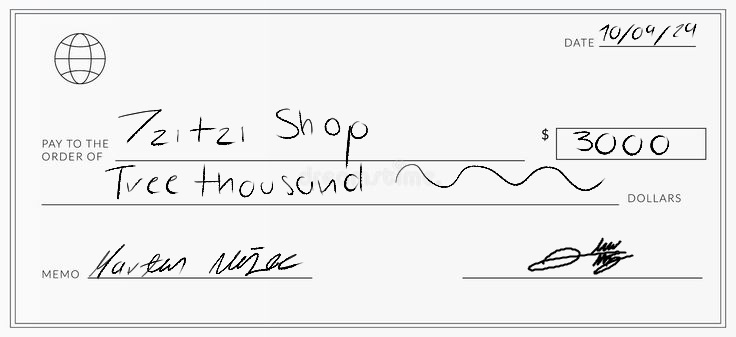 DATE 10/09/24
PAY TO THE ORDER OF Tzitzi Shop $ 3000
Tree thousand DOLLARS
MEMO
dreamstime